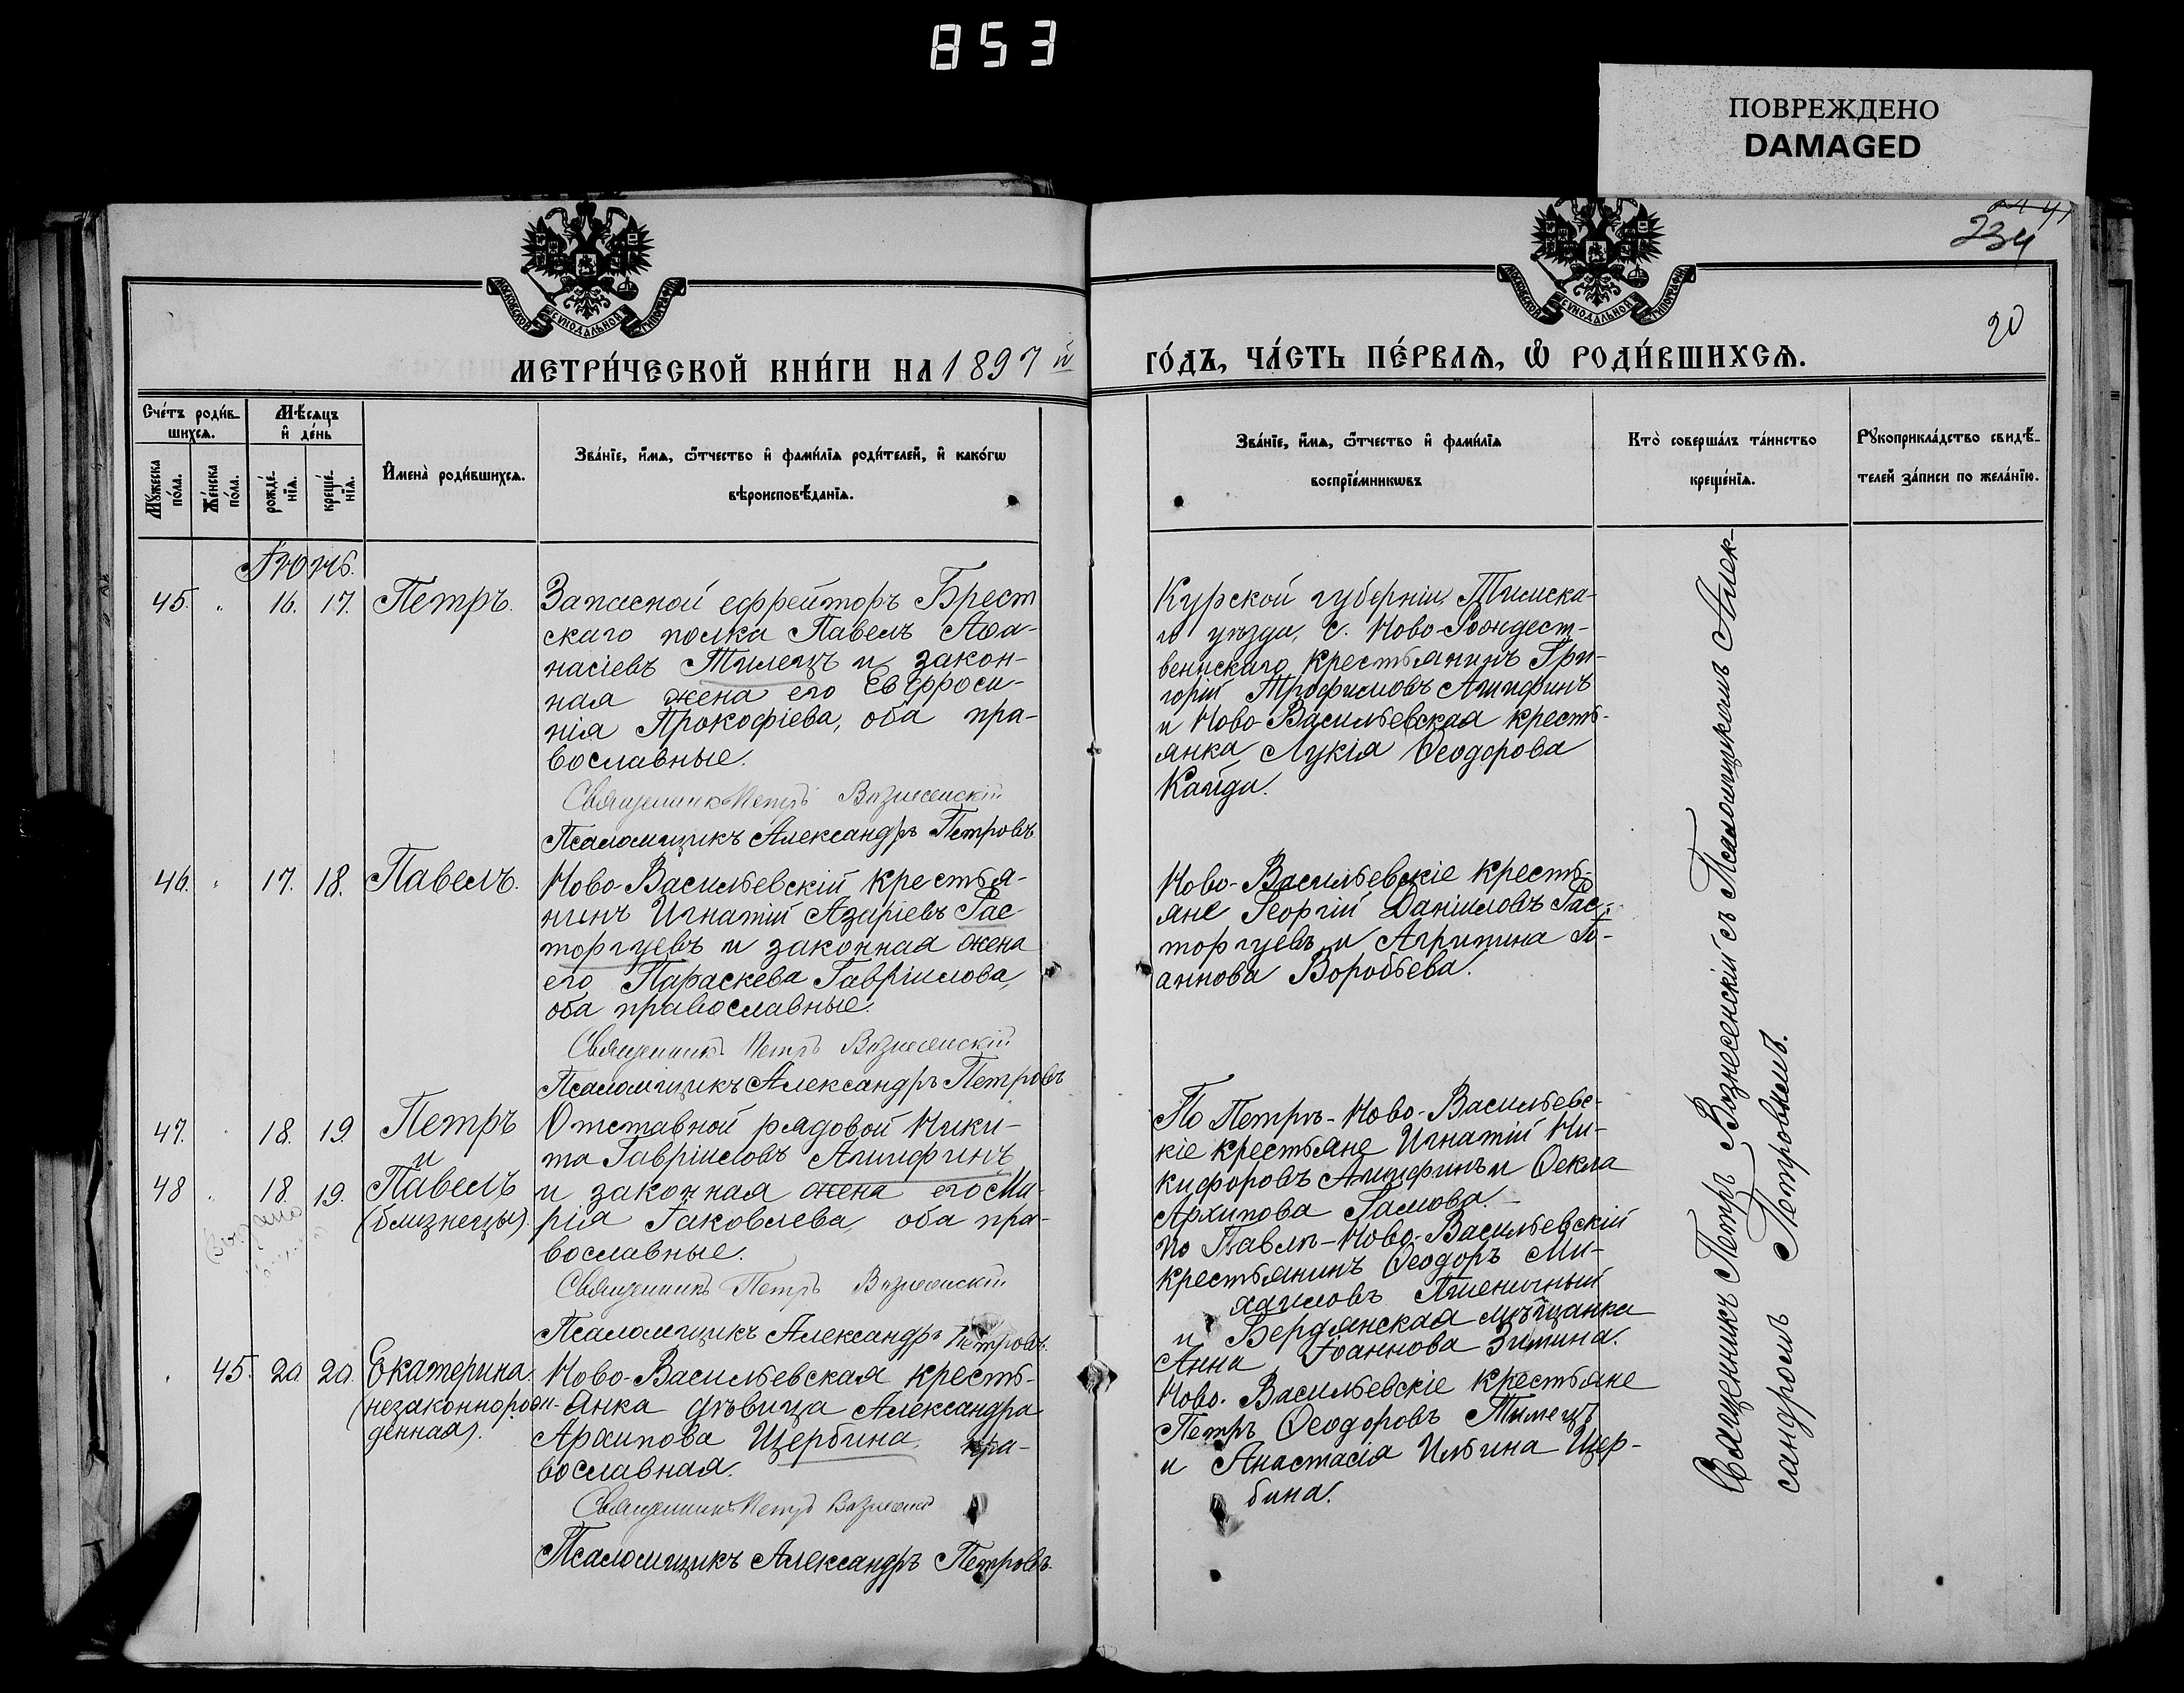 853
ПОВРЕЖДЕНО
DAMAGED
234
20
МОСКОВСКОЙ СѴНОДАЛЬНОЙ ТИПОГРАФІИ
МОСКОВСКОЙ СѴНОДАЛЬНОЙ ТИПОГРАФІИ
МЕТРИ́ЧЕСКОЙ КНИ́ГИ НА 1897 й
ГО́ДЪ, ЧА́СТЬ ПЕ́РВАЯ, Ѡ҆ РОДИ́ВШИХСЯ.
Сче́тъ роди́в-
шихся.
Мѣ́сяцъ
и҆ де́нь
Мꙋ́жеска по́ла.
Же́нска по́ла.
рожде́-
нїя.
креще́-
нїя.
И҆мена̀ роди́вшихся.
Зва́нїе, и҆́мя, ѻ҆́тчество и҆ фами́лїя роди́телей, и҆ како́гѡ
вѣроисповѣ́данїя.
Зва́нїе, и҆́мя, ѻ҆́тчество и҆ фами́лїя
воспрїе́мникѡвъ
Кто̀ соверша́лъ та́инство
креще́нїя.
Рꙋкоприкла́дство свидѣ́-
телей за́писи по жела́нїю.
Іюнь.
45. " 16. 17. Петръ.
Запасной ефрейторъ Брест
скаго полка Павелъ Аѳа-
насіевъ Тилецъ и закон-
ная жена его Евфроси-
нія Прокофіева, оба пра-
вославные.
Священникъ Петръ Вознесенскій
Псаломщикъ Александръ Петровъ
Курской губерніи, Тимска-
го уѣзда, с. Ново-Рождест-
венскаго крестьянинъ Гри-
горій Трофимовъ Агипфинъ
и Ново-Васильевская кресть-
янка Лукія Ѳеодорова
Кайда.
46. " 17. 18. Павелъ.
Ново-Васильевскій кресть­я-
нинъ Игнатій Азаріевъ Рас-
торгуевъ и законная жена
его Параскева Гавріилова,
оба православные.
Священникъ Петръ Вознесенскій
Псаломщикъ Александръ Петровъ
Ново-Васильевскіе кресть-
яне Георгій Даніиловъ Рас-
торгуевъ и Агрипина Іо-
аннова Воробьева.
47. " 18. 19. Петръ
и
48 " 18. 19. Павелъ
(близнецы).
Отставной рядовой Ники-
та Гавріиловъ Агипфинъ
и законная жена его Ма-
рія Іаковлева, оба пра-
вославные.
Священникъ Петръ Вознесенскій
Псаломщикъ Александръ Петровъ.
По Петрѣ-Ново-Васильевс-
кіе крестьяне Игнатій Ни-
кифоровъ Агипфинъ и Ѳекла
Архипова Гамова.
по Павлѣ-Ново-Васильевскій
крестьянинъ Ѳеодоръ Ми-
хаиловъ Пшеничный
и Бердянская мѣщанка
Анна Іоаннова Зимина.
" 45. 20. 20. Екатерина.
(незаконнорож-
денная).
Ново-Васильевская кресть-
янка дѣвица Александра
Архипова Щербина, пра-
вославная.
Священникъ Петръ Вознесенскій
Псаломщикъ Александръ Петровъ.
Ново-Васильевскіе крестьяне
Петръ Ѳеодоровъ Тилецъ
и Анастасія Ильина Щер-
бина.
Священникъ Петръ Вознесенскій съ Псаломщикомъ Алек-
сандромъ Петровымъ.